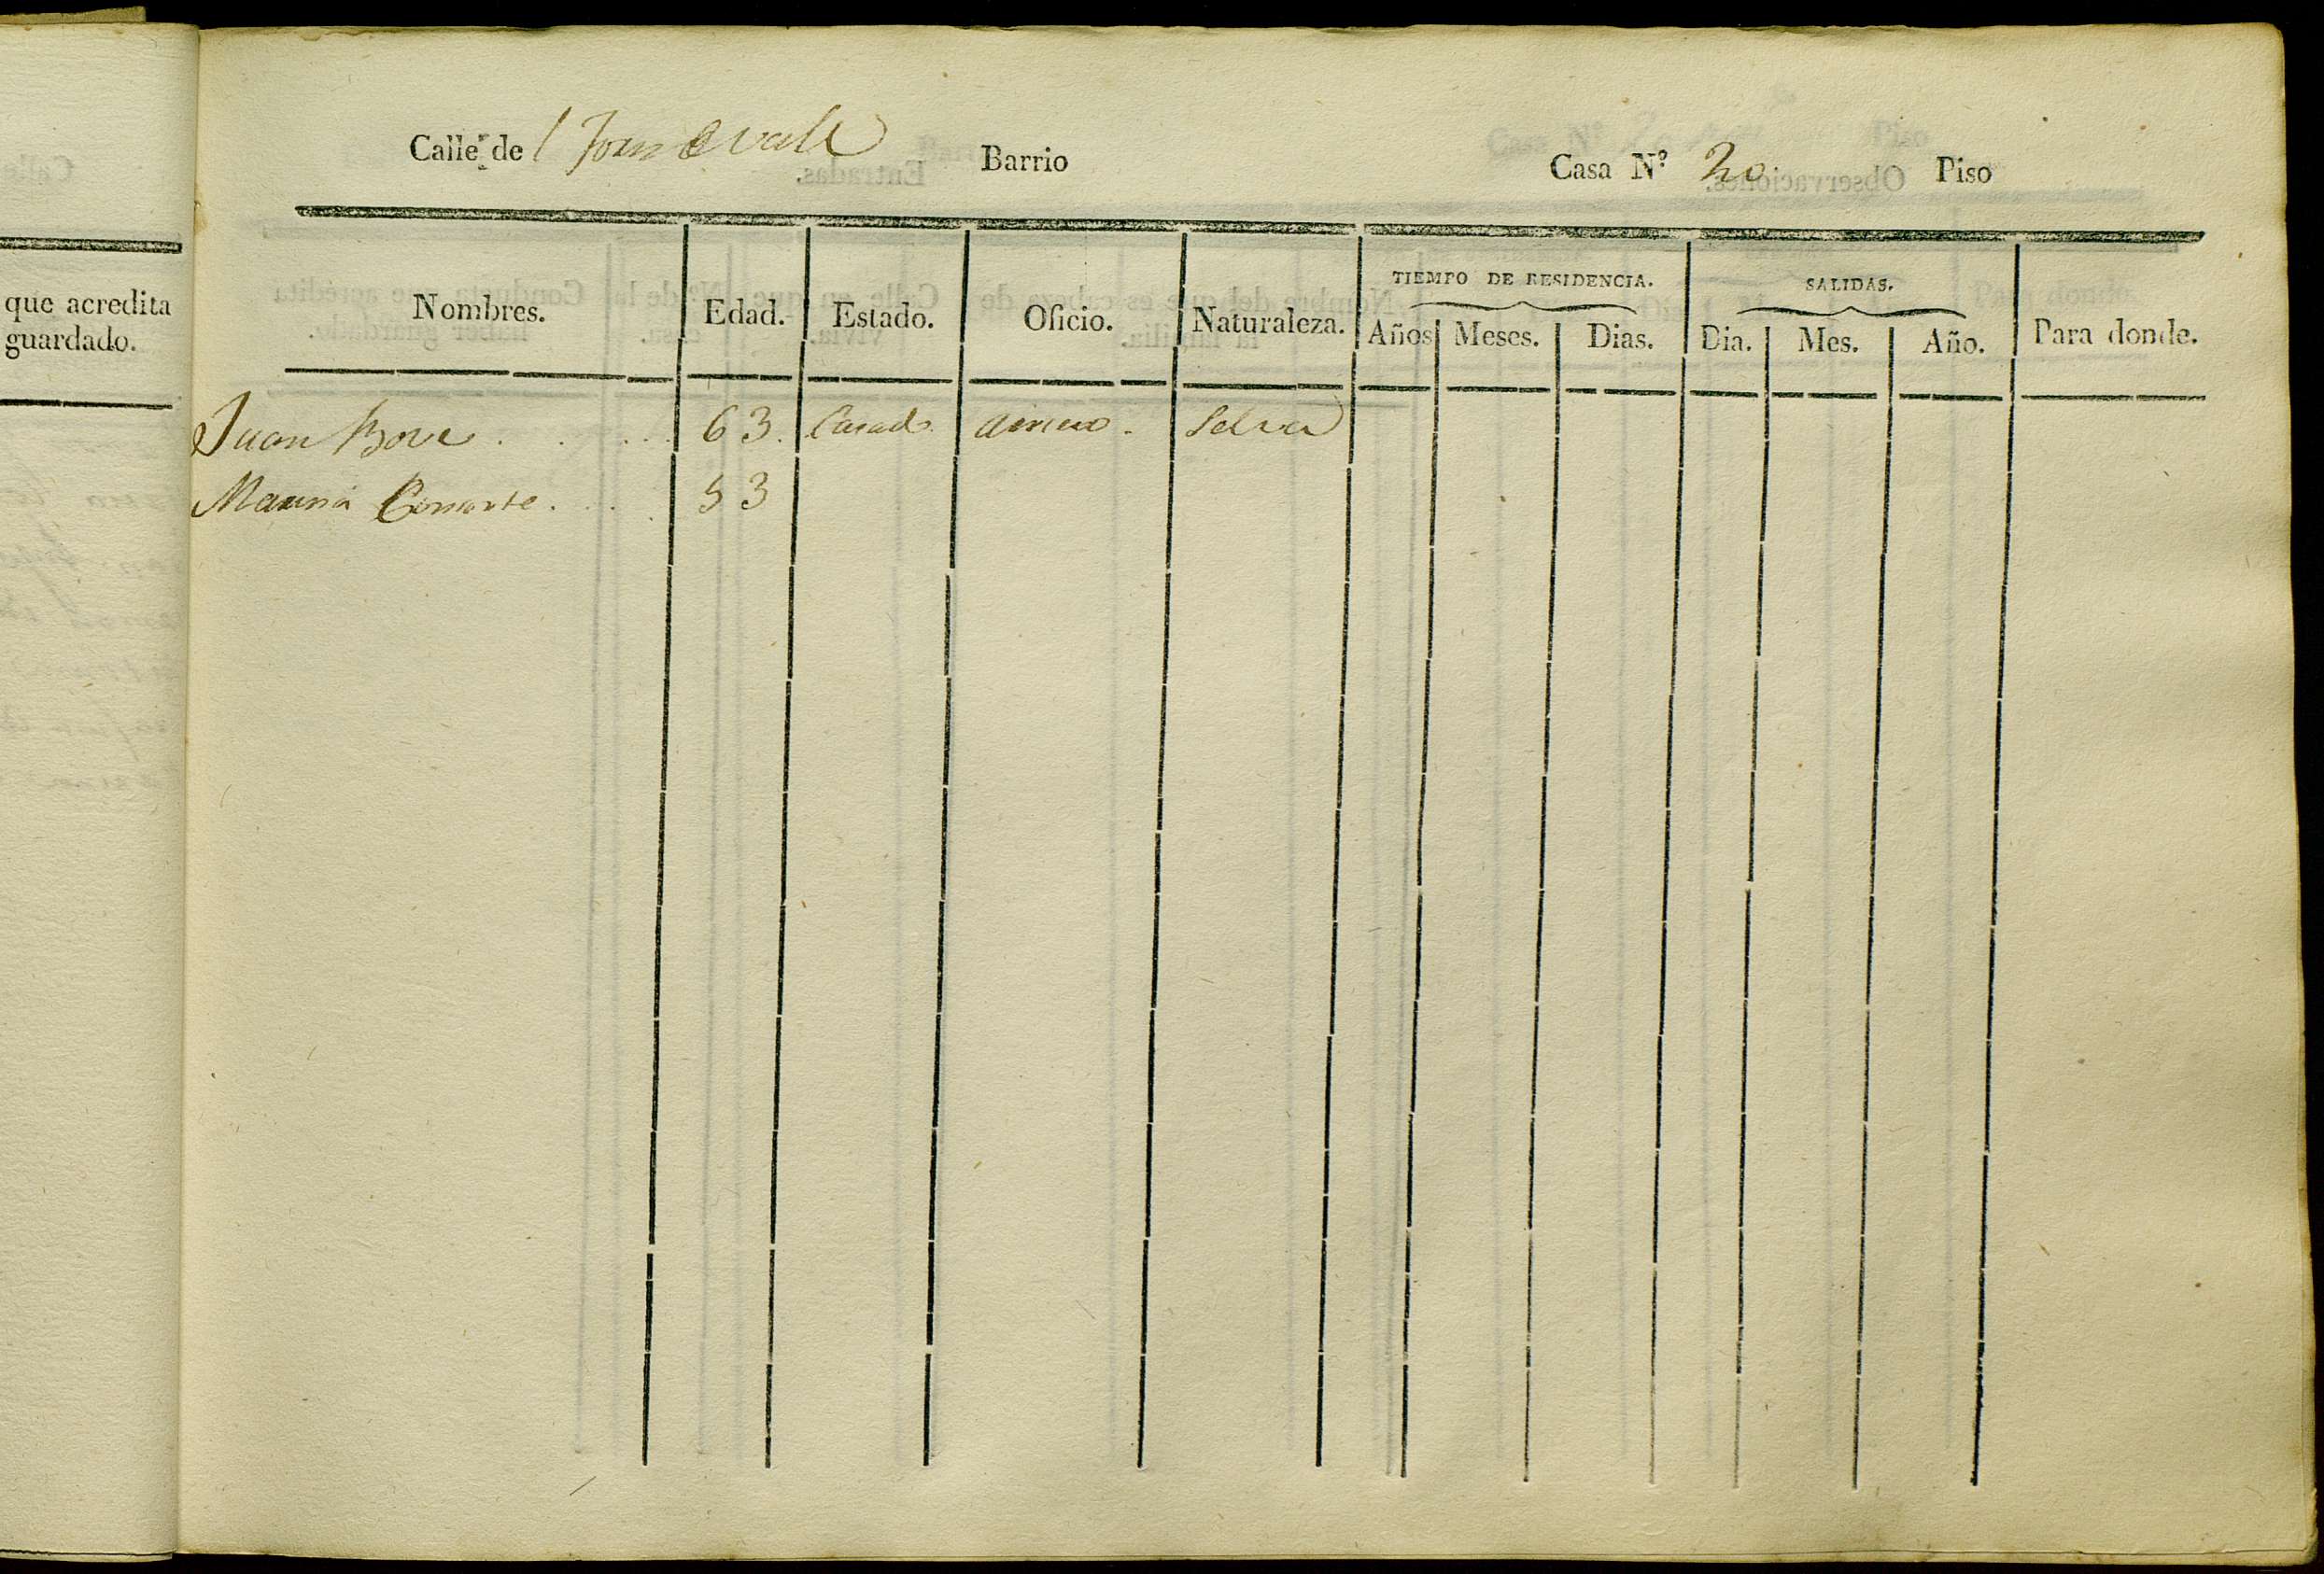 Calle de Barrio Casa Nº 20 Piso
TIEMPO DE RESIDENCIA. SALIDAS.
Nombres. Edad. Estado. Oficio. Naturaleza. Años Meses. Dias. Dia. Mes. Año. Para donde.
Juan Bove 63. Casado Selva
53
que acredita
guardado.